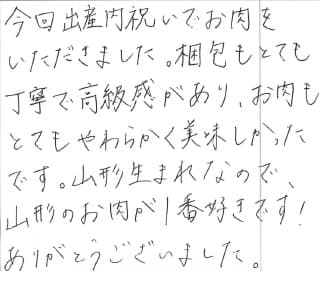 今回出産内祝いでお肉を
いただきました。梱包もとても
丁寧で高級感があり、お肉も
とてもやわらかく美味しかった
です。山形生まれなので、
山形のお肉が1番好きです!
ありがとうございました。